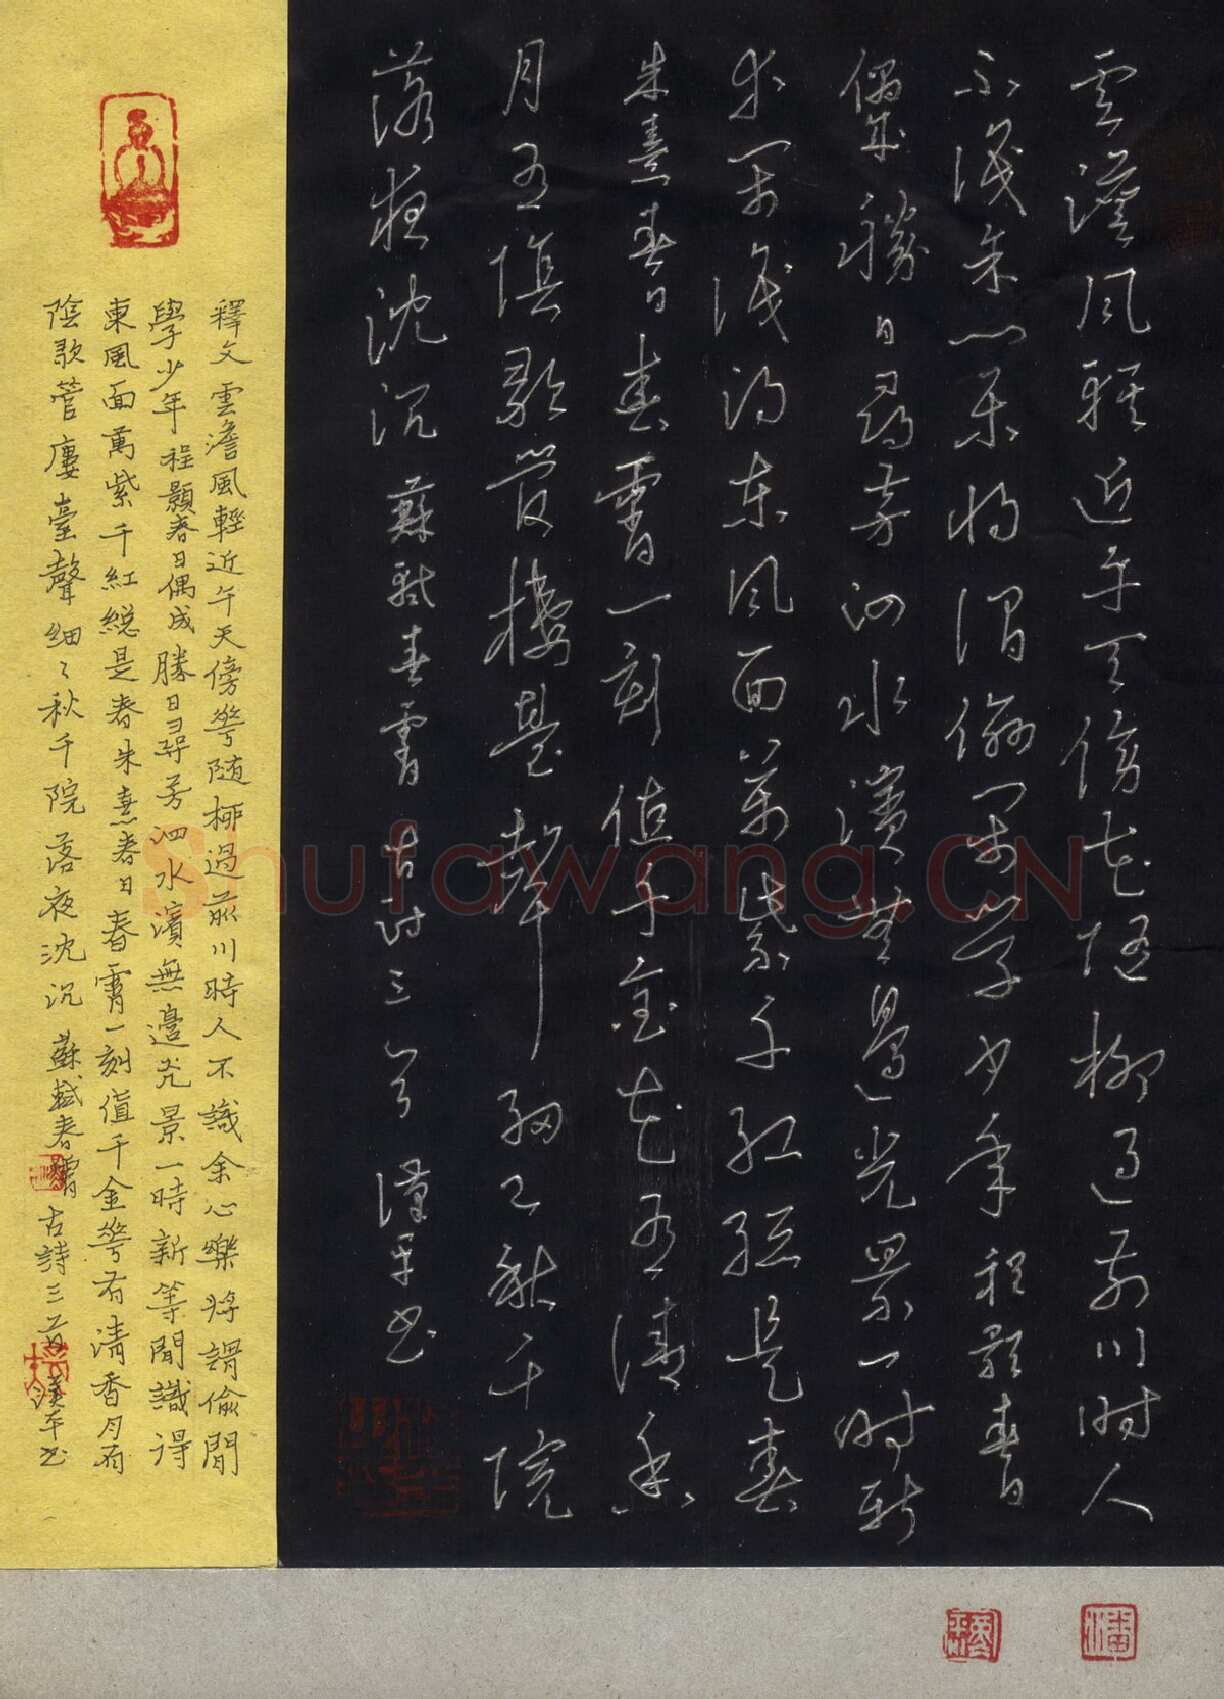 雲澹風輕近午天傍花随柳過前川時人
不識余心樂将謂偷閒學少年程顥春日
偶成勝日尋芳泗水濱無邊光景一時新
等閒識得東風面萬紫千紅總是春
朱熹春日春宵一刻值千金花有清香
月有陰歌管樓臺聲細々秋千院
落夜沈沉蘇軾春宵古詩三首漢平书
釋文雲澹風輕近午天傍華随柳過前川時人不識余心樂將謂偷閒
學少年程顥春日偶成勝日尋芳泗水濱無邊光景一時新等閒識得
東風面萬紫千紅総是春朱熹春日春宵一刻值千金華有清香月有
陰歌管廔臺聲細々秋千院落夜沈沉蘇軾春宵古詩三首漢平书
Shufawang.CN